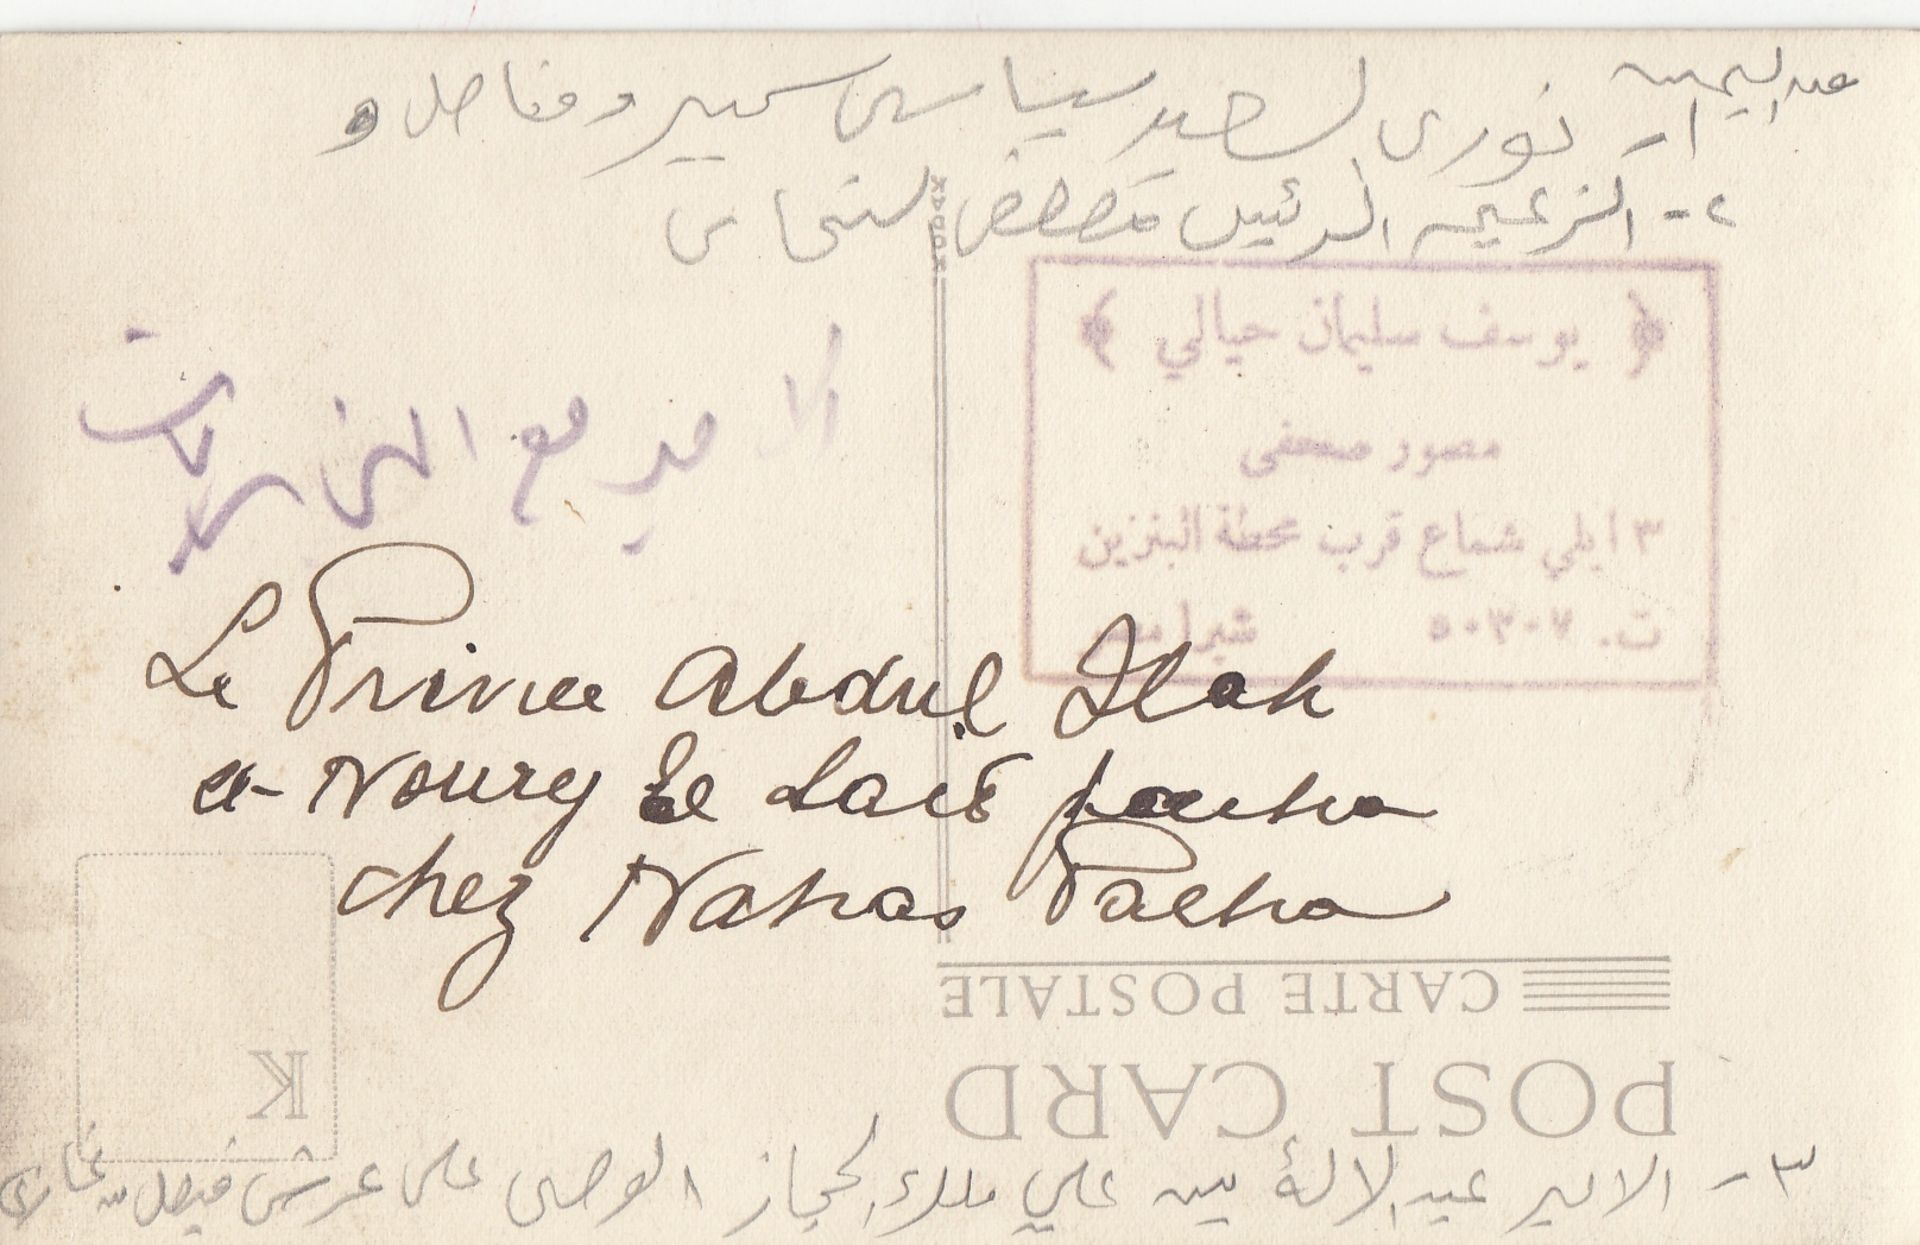 من اليمين
١ - نورى السعيد سياسى كبير ومفاصل و
٢ - الزعيم الرئيس مصطفى النحاس
KODAK
يوسف سليمان حيالي
مصور صحفى
٣ ايلي شماع قرب محطة البنزين
ت. ٥٠٣٠٧ شبرا مصر
مع
Le Prince Abdul Ilah
et Noury El Said pacha
chez Nahas Pacha
CARTE POSTALE
POST CARD
K
٣ - الامير عبد الالة بن علي ملك الحجاز الوصى على عرش فيصل بن غازى